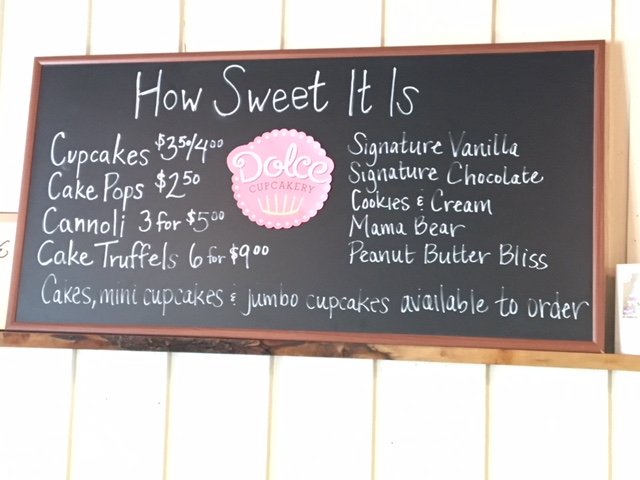 How Sweet It Is
Cupcakes $3.50/4.00
Cake Pops $2.50
Cannoli 3 for $5.00
Cake Truffels 6 for $9.00
Dolce
CUPCAKERY
Signature Vanilla
Signature Chocolate
Cookies & Cream
Mama Bear
Peanut Butter Bliss
Cakes, mini cupcakes & jumbo cupcakes available to order